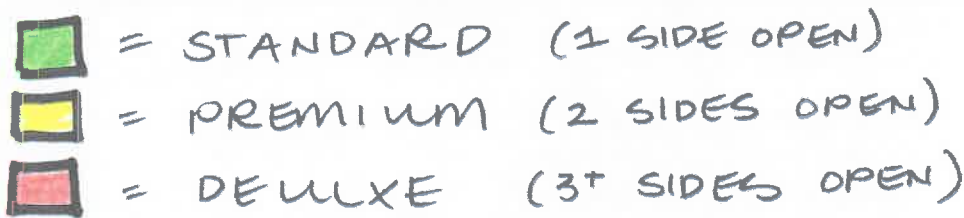 = STANDARD (1 SIDE OPEN)
= PREMIUM (2 SIDES OPEN)
= DELUXE (3+ SIDES OPEN)